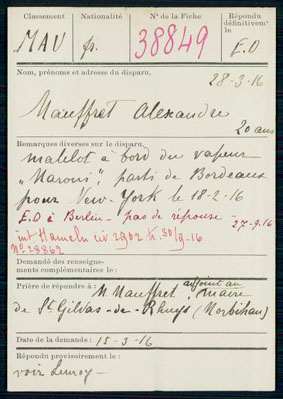 Classement
Nationalité
N° de la Fiche
Répondu
définitivemt
le
MAU
fr.
38849
E.D
Nom, prénoms et adresse du disparu.
28-3-16
Mauffret Alexandre
20 ans
Remarques diverses sur le disparu.
matelot à bord du vapeur
„Maroni", parti de Bordeaux
pour New-York le 18-2-16
E.D à Berlin - pas de réponse 27-9-16
int Hameln civ 2902 K. 30/9-16
No 28862
Demandé des renseigne-
ments complémentaires le :
Prière de répondre à : M. Mauffret, adjoint au maire
de St Gildas-de-Rhuys (Morbihan)
Date de la demande : 15-3-16
Répondu provisoirement le :
voir Lemroy-